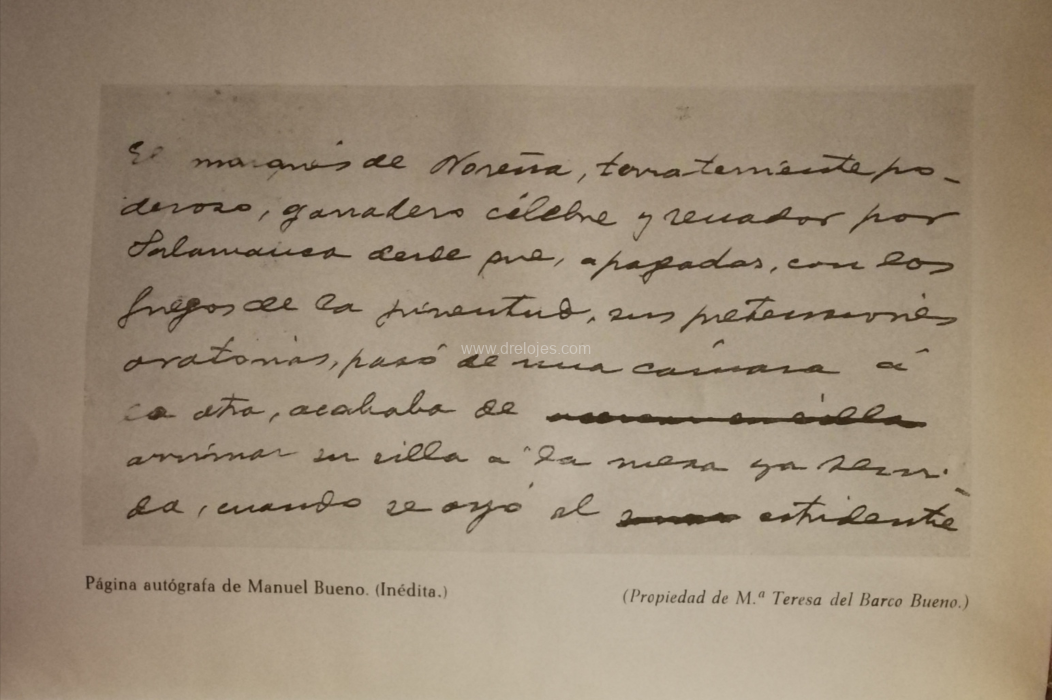 El marqués de Noreña, terrateniente po-
deroso, ganadero célebre y senador por
Salamanca desde que, apagadas, con los
fuegos de la juventud, sus pretensiones
oratorias, pasó de una cámara á
la otra, acababa de acercar su silla
arrimar su silla a la mesa ya servi-
da, cuando se oyó el estridente
www.drelojes.com
Página autógrafa de Manuel Bueno. (Inédita.)
(Propiedad de M.ª Teresa del Barco Bueno.)